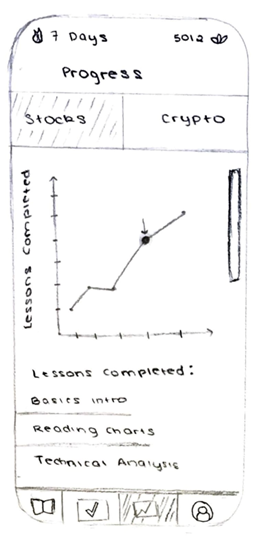 7 Days 5012
Progress
Stocks Crypto
Lessons Completed
Lessons Completed:
Basics Intro
Reading Charts
Technical Analysis